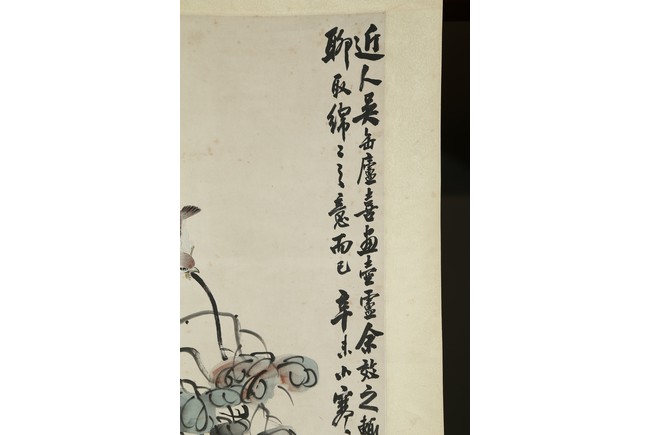 近人吳缶廬喜畫壺盧余效之輒
聊取綿〻之意而已 辛未小寒